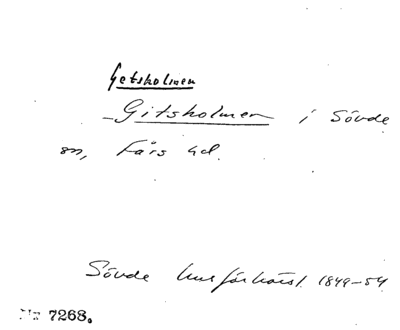 Getsholmen
- Gitsholmen i Sövde
sn, Färs hd.
Sövde husförhörsl. 1849-54
Nr 7268.